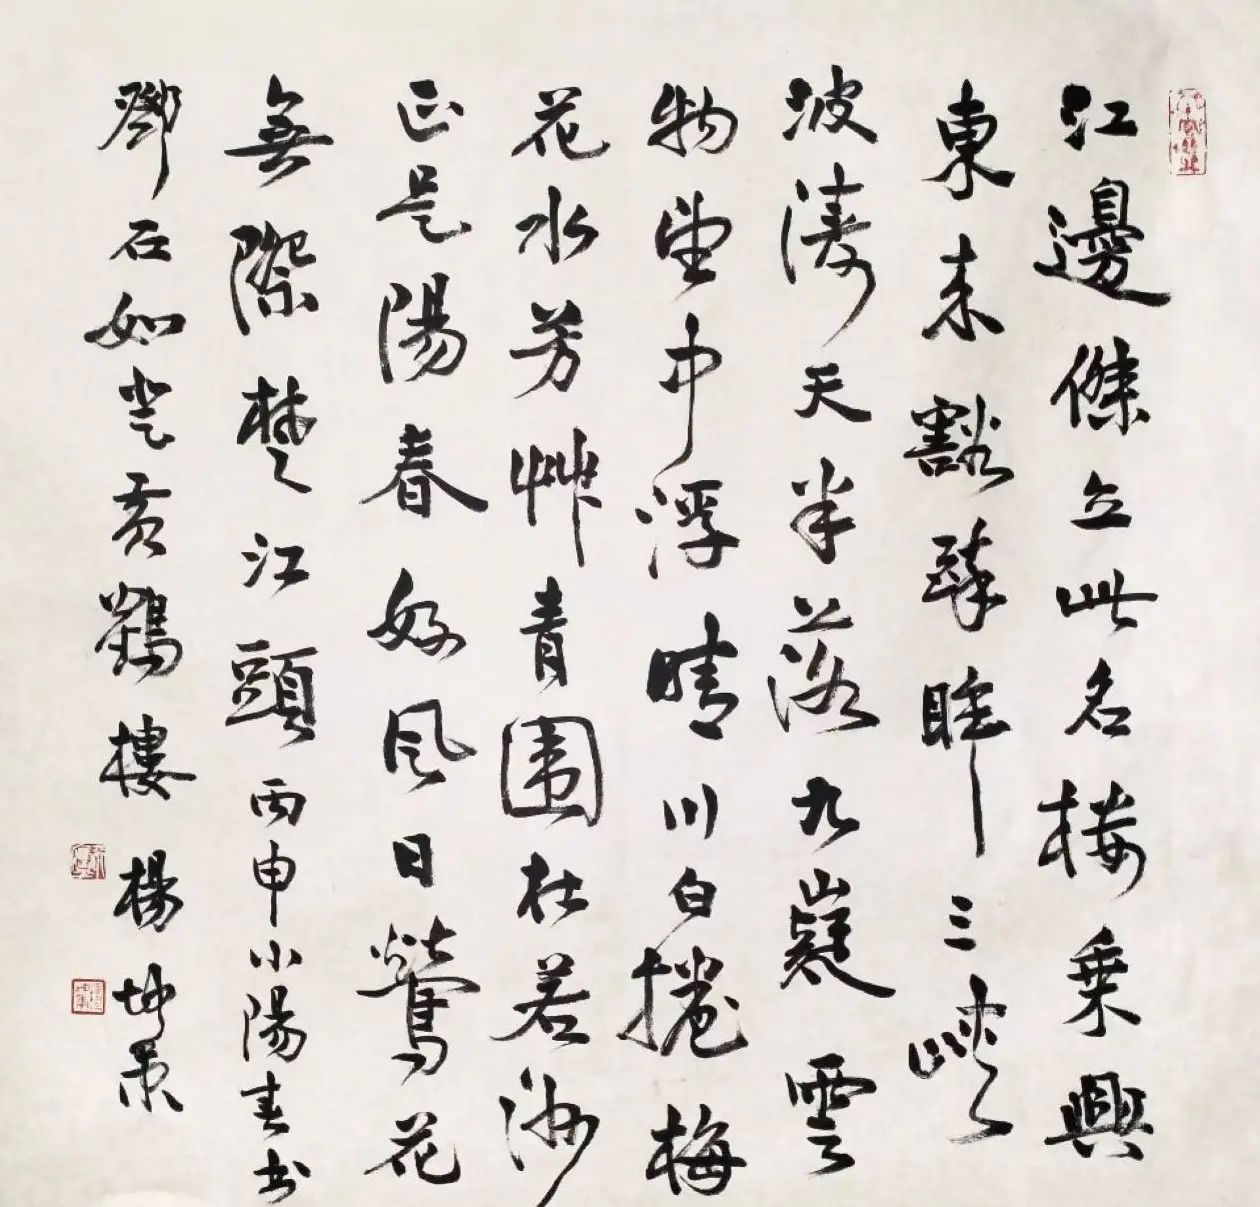 江邊傑立此名楼乘興
東来豁醉眸三峽
波涛天半落九嶷雲
物望中浮晴川白捲梅
花水芳艸青围杜若洲
正是陽春好风日鶯花
無際楚江頭丙申小陽春书
鄧石如登黄鶴樓 楊坤